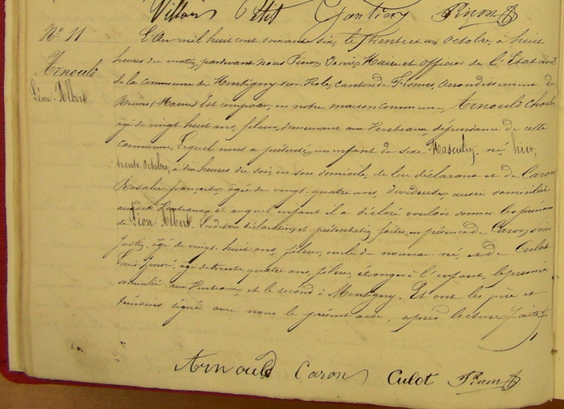 Villain Petit Gautier Pinon
No 11
Arnould
Léon Albert
L'An mil huit cent soixante six, le trente et un Octobre, à huit
heures du matin, pardevant nous Pinon, Maire et Officier de l'Etat civil
de la commune de Montigny sur Vesle, canton de Fismes, arrondissement de
Reims, Marne. Est comparu, en notre maison commune, Arnould Charles
âgé de vingt huit ans, demeurant aux Venteaux, dépendance de cette
commune, lequel nous a présenté un enfant de sexe Masculin né, hier,
trente octobre, à dix heures du soir, en son domicile, de lui déclarant et de Caron
Rosalie françoise, âgée de vingt quatre ans, aussi domiciliée
aux dits Venteaux et auquel enfant il a déclaré vouloir donner les prénoms
de Léon Albert. Les dites déclaration et présentation faites en présence de Caron
âgé de vingt huit ans, et de Culot
âgé de trente quatre ans, à l'enfant, le premier
domicilié aux Venteaux, et le second à Montigny. Et ont les père et
témoins signé avec nous le présent acte, après lecture faite.
Arnould Caron Culot Pinon